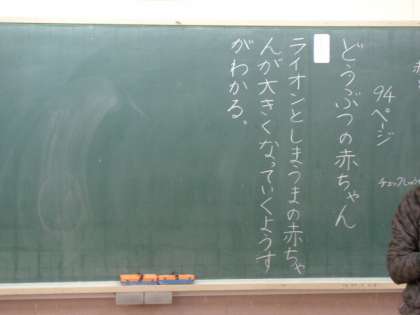 94ページ
どうぶつの赤ちゃん
ライオンとしまうまの赤ちゃ
んが大きくなっていくようす
がわかる。